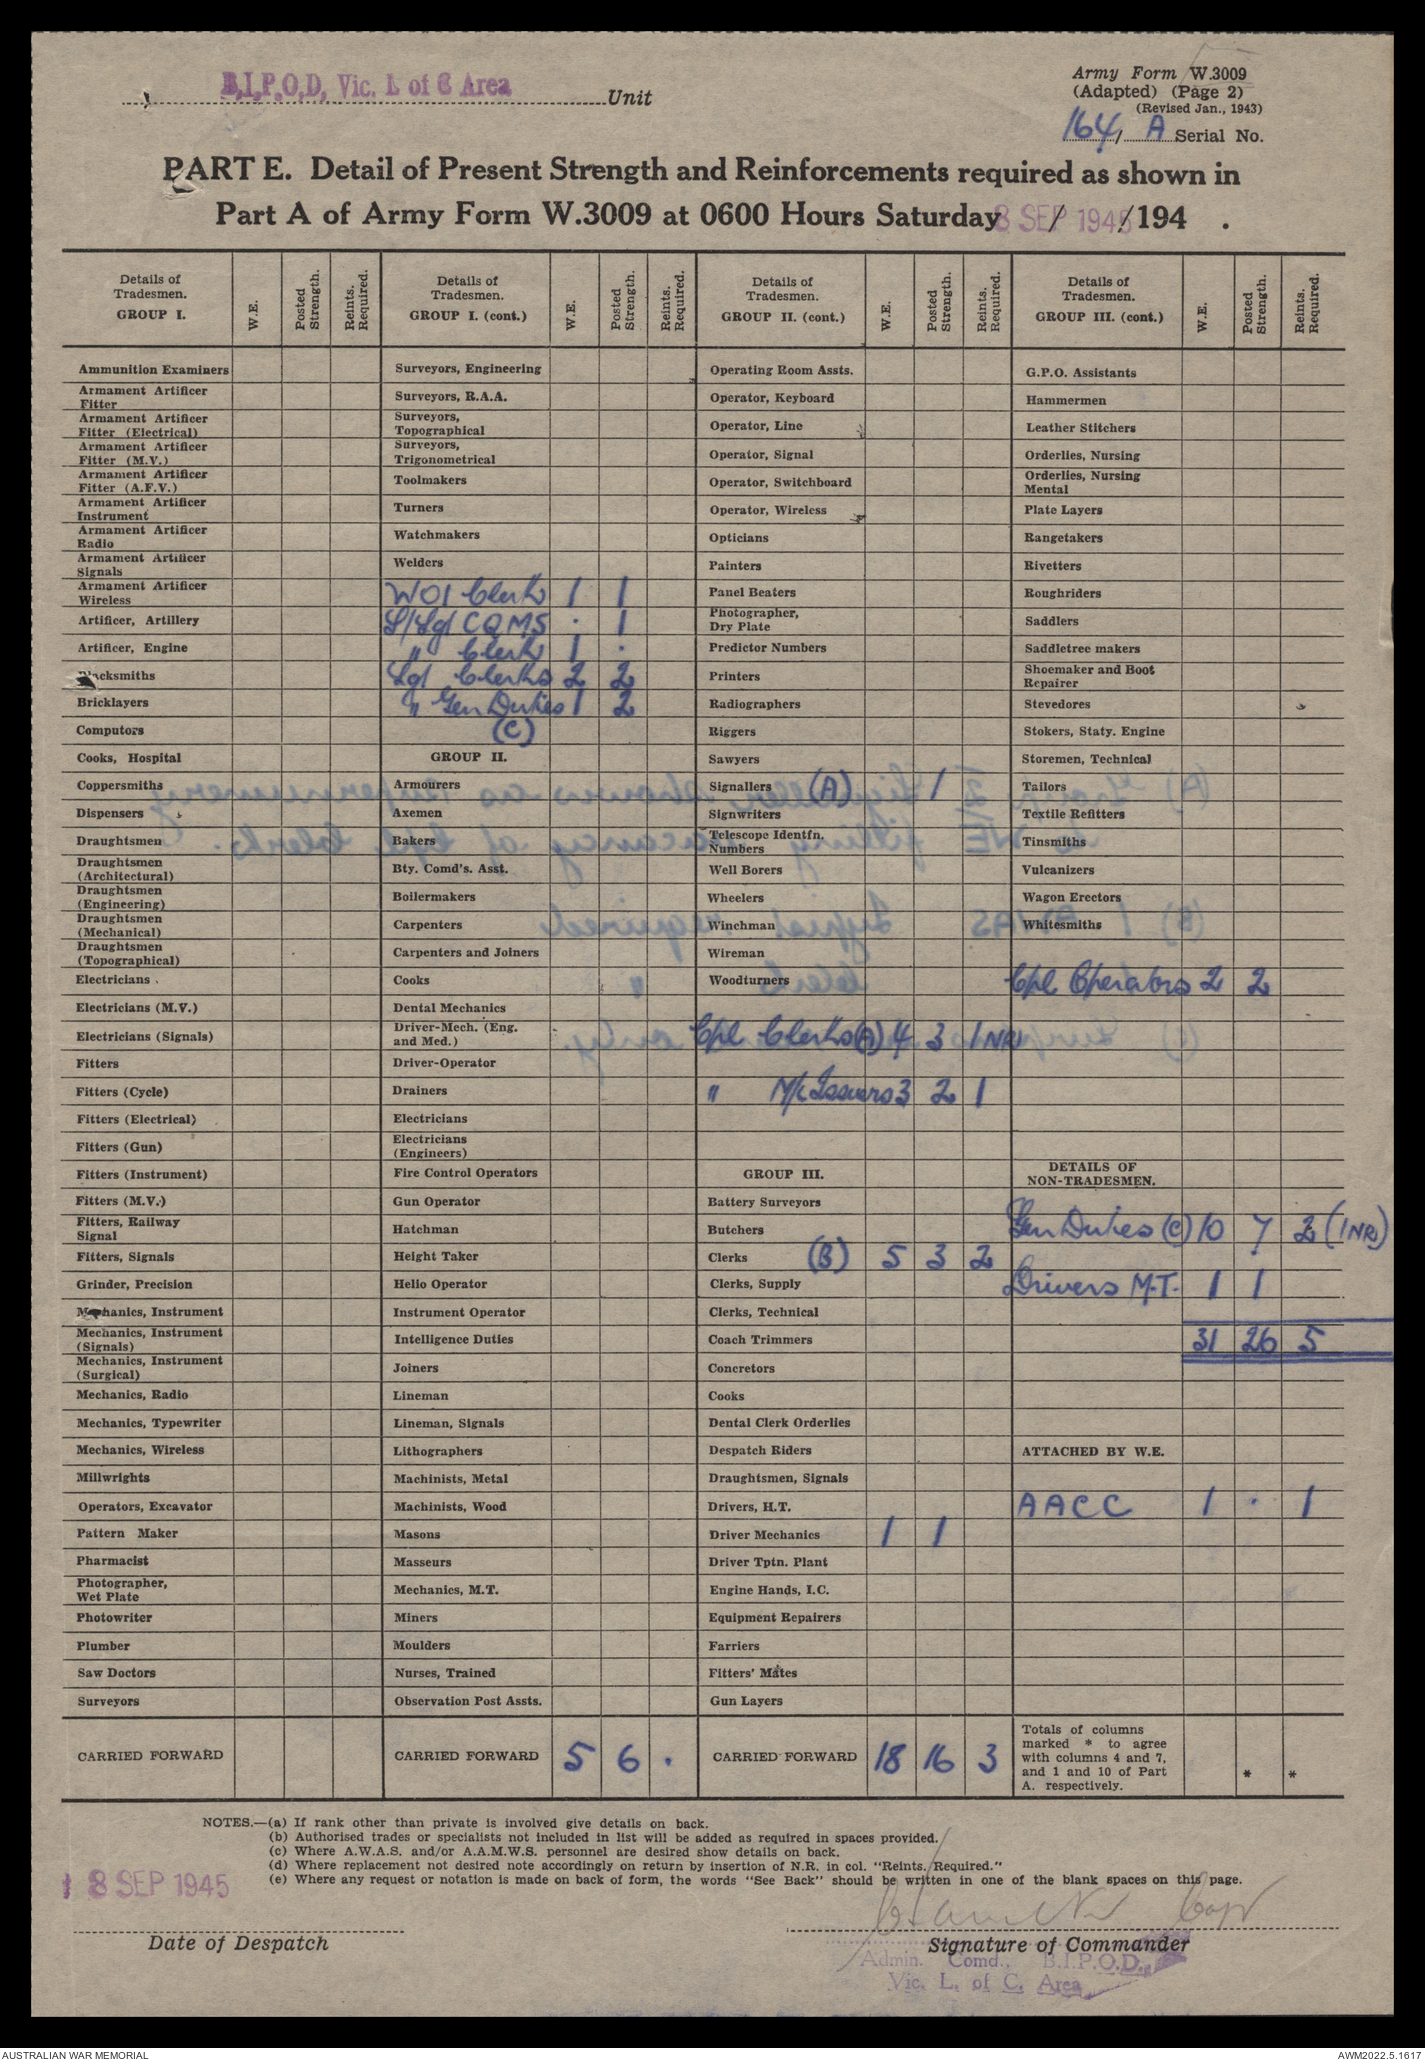 B.I.P.O.D, Vic. L of C Area Unit
Army Form W.3009
(Adapted) (Page 2)
(Revised Jan., 1943)
164/ A Serial No.
PART E. Detail of Present Strength and Reinforcements required as shown in
Part A of Army Form W.3009 at 0600 Hours Saturday 8 SEP 1945 / /194 .
Details of Tradesmen. GROUP I.
W.E.
Posted Strength.
Reints. Required.
Ammunition Examiners
Armament Artificer Fitter
Armament Artificer Fitter (Electrical)
Armament Artificer Fitter (M.V.)
Armament Artificer Fitter (A.F.V.)
Armament Artificer Instrument
Armament Artificer Radio
Armament Artificer Signals
Armament Artificer Wireless
Artificer, Artillery
Artificer, Engine
Blacksmiths
Bricklayers
Computors
Cooks, Hospital
Coppersmiths
Dispensers
Draughtsmen
Draughtsmen (Architectural)
Draughtsmen (Engineering)
Draughtsmen (Mechanical)
Draughtsmen (Topographical)
Electricians
Electricians (M.V.)
Electricians (Signals)
Fitters
Fitters (Cycle)
Fitters (Electrical)
Fitters (Gun)
Fitters (Instrument)
Fitters (M.V.)
Fitters, Railway Signal
Fitters, Signals
Grinder, Precision
Mechanics, Instrument
Mechanics, Instrument (Signals)
Mechanics, Instrument (Surgical)
Mechanics, Radio
Mechanics, Typewriter
Mechanics, Wireless
Millwrights
Operators, Excavator
Pattern Maker
Pharmacist
Photographer, Wet Plate
Photowriter
Plumber
Saw Doctors
Surveyors
CARRIED FORWARD
Details of Tradesmen. GROUP I. (cont.)
W.E.
Posted Strength.
Reints. Required.
Surveyors, Engineering
Surveyors, R.A.A.
Surveyors, Topographical
Surveyors, Trigonometrical
Toolmakers
Turners
Watchmakers
Welders
WO1 Clerk 1 1
S/Sgt CQMS . 1
" Clerk 1 .
Sgt Clerks 2 2
" Gen Duties 1 2
(C)
GROUP II.
Armourers
Axemen
Bakers
Bty. Comd's. Asst.
Boilermakers
Carpenters
Carpenters and Joiners
Cooks
Dental Mechanics
Driver-Mech. (Eng. and Med.)
Driver-Operator
Drainers
Electricians
Electricians (Engineers)
Fire Control Operators
Gun Operator
Hatchman
Height Taker
Helio Operator
Instrument Operator
Intelligence Duties
Joiners
Lineman
Lineman, Signals
Lithographers
Machinists, Metal
Machinists, Wood
Masons
Masseurs
Mechanics, M.T.
Miners
Moulders
Nurses, Trained
Observation Post Assts.
CARRIED FORWARD 5 6 .
Details of Tradesmen. GROUP II. (cont.)
W.E.
Posted Strength.
Reints. Required.
Operating Room Assts.
Operator, Keyboard
Operator, Line
Operator, Signal
Operator, Switchboard
Operator, Wireless
Opticians
Painters
Panel Beaters
Photographer, Dry Plate
Predictor Numbers
Printers
Radiographers
Riggers
Sawyers
Signallers (A) 1
Signwriters
Telescope Identfn. Numbers
Well Borers
Wheelers
Winchman
Wireman
Woodturners
Cpl Clerks (A) 4 3 1 NR
" M/c Issuers 3 2 1
GROUP III.
Battery Surveyors
Butchers
Clerks (B) 5 3 2
Clerks, Supply
Clerks, Technical
Coach Trimmers
Concretors
Cooks
Dental Clerk Orderlies
Despatch Riders
Draughtsmen, Signals
Drivers, H.T.
Driver Mechanics 1 1
Driver Tptn. Plant
Engine Hands, I.C.
Equipment Repairers
Farriers
Fitters' Mates
Gun Layers
CARRIED FORWARD 18 16 3
Details of Tradesmen. GROUP III. (cont.)
W.E.
Posted Strength.
Reints. Required.
G.P.O. Assistants
Hammermen
Leather Stitchers
Orderlies, Nursing
Orderlies, Nursing Mental
Plate Layers
Rangetakers
Rivetters
Roughriders
Saddlers
Saddletree makers
Shoemaker and Boot Repairer
Stevedores
Stokers, Staty. Engine
Storemen, Technical
Tailors
Textile Refitters
Tinsmiths
Vulcanizers
Wagon Erectors
Whitesmiths
Cpl Operators 2 2
DETAILS OF NON-TRADESMEN.
Gen Duties (C) 10 7 2 (1NR)
Drivers M.T. 1 1
31 26 5
ATTACHED BY W.E.
AACC 1 . 1
Totals of columns marked * to agree with columns 4 and 7, and 1 and 10 of Part A. respectively. * *
NOTES.—(a) If rank other than private is involved give details on back.
(b) Authorised trades or specialists not included in list will be added as required in spaces provided.
(c) Where A.W.A.S. and/or A.A.M.W.S. personnel are desired show details on back.
(d) Where replacement not desired note accordingly on return by insertion of N.R. in col. "Reints. Required."
(e) Where any request or notation is made on back of form, the words "See Back" should be written in one of the blank spaces on this page.
8 SEP 1945
Date of Despatch
Capt
Signature of Commander
Admin. Comd., B.I.P.O.D.,
Vic. L. of C. Area
AUSTRALIAN WAR MEMORIAL
AWM2022.5.1617